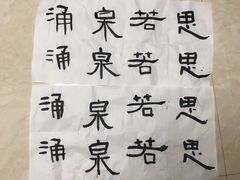 思若泉涌
思若泉涌
思若泉涌
思若泉涌